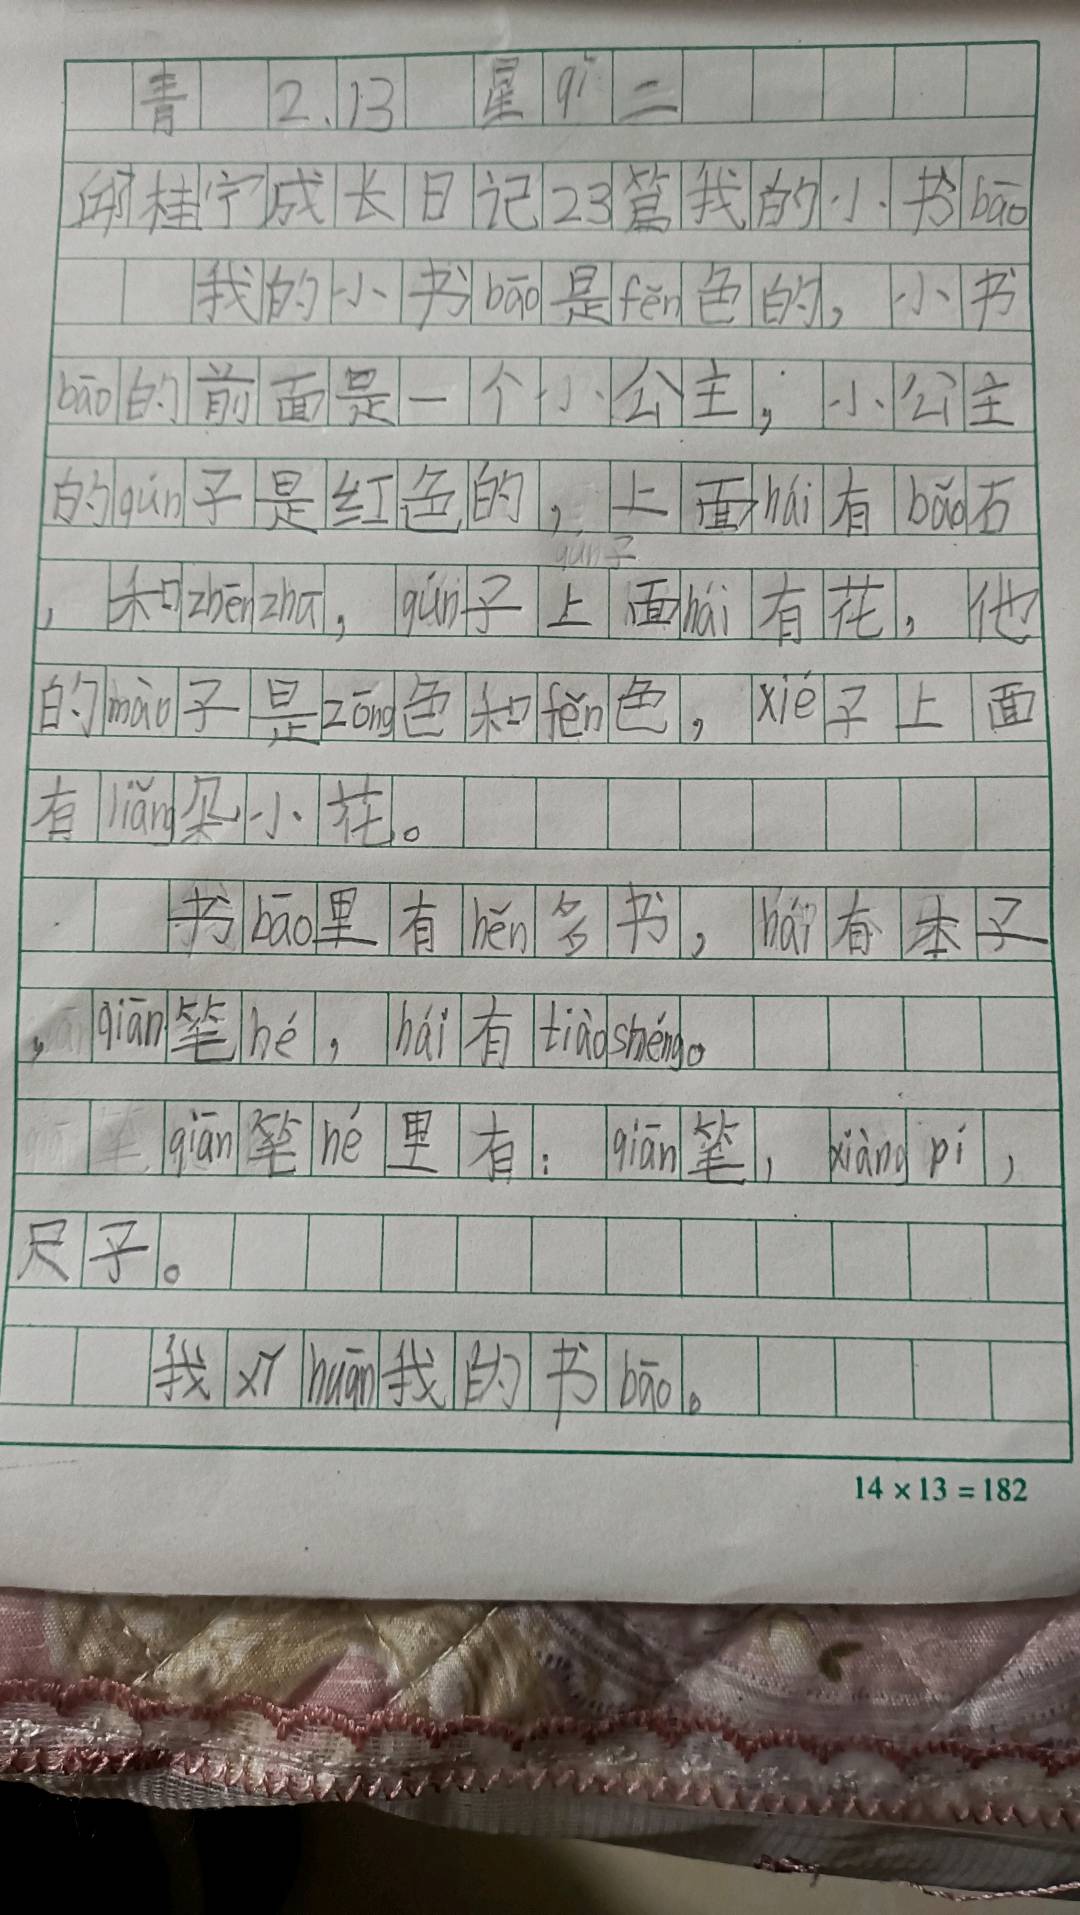 青 2.13 星qī二
邱桂宁成长日记23篇我的小书bāo
我的小书bāo是fěn色的，小书
bāo的前面是一个小公主，小公主
的qún子是红色的，上面hái有bǎo石
，和zhēnzhū，qún子上面hái有花，他
的mào子是zōng色和fěn色，xié子上面
有liǎng朵小花。
书bāo里有hěn多书，hái有本子
，qiān笔hé，hái有tiàoshéng。
qiān笔hé里有：qiān笔，xiàngpí，
尺子。
我xǐhuān我的书bāo。
14×13=182